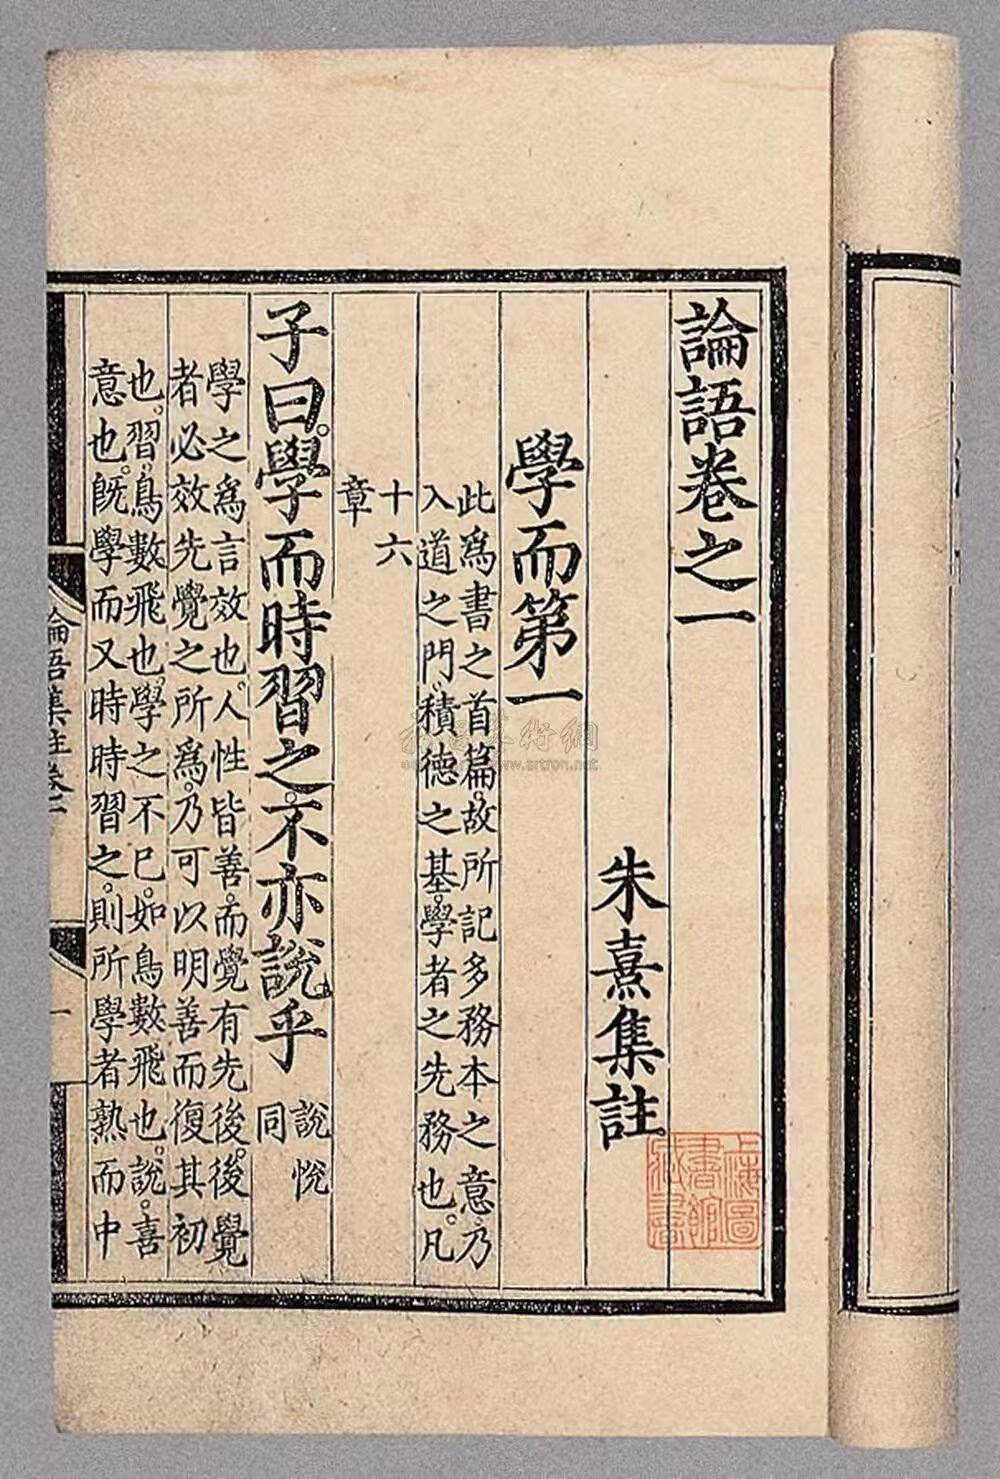 論語卷之一
朱熹集註
學而第一
此爲書之首篇。故所記多務本之意。乃
入道之門、積德之基。學者之先務也。凡
十六
章
子曰。學而時習之。不亦說乎
說悅
同
學之爲言效也。人性皆善。而覺有先後。後覺
者必效先覺之所爲。乃可以明善而復其初
也。習。鳥數飛也。學之不已。如鳥數飛也。說。喜
意也。旣學而又時時習之。則所學者熟而中
論語集註卷一
一
上海圖
書館
藏書
www.artron.net